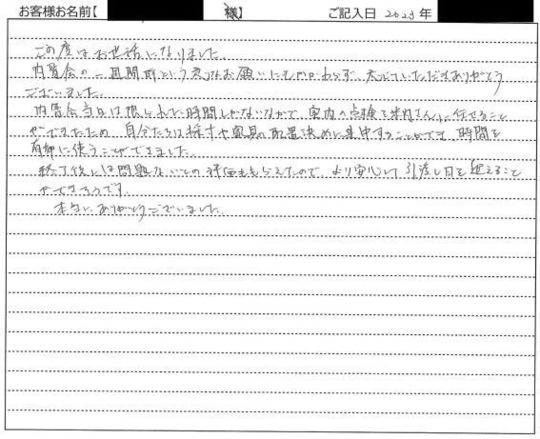 お客様お名前【 様】 ご記入日 2023年
この度はお世話になりました。
内覧会の一週間前という急なお願いにもかかわらず、対応いただきありがとう
ございました。
内覧会当日は限られた時間しかないなかで、室内の点検を さんに任せること
ができたため、自分たちは採寸や家具の配置決めに集中することができ、時間を
有効に使うことができました。
終了後には問題ないとの評価ももらえたので、より安心して引渡し日を迎えること
ができそうです。
本当にありがとうございました。